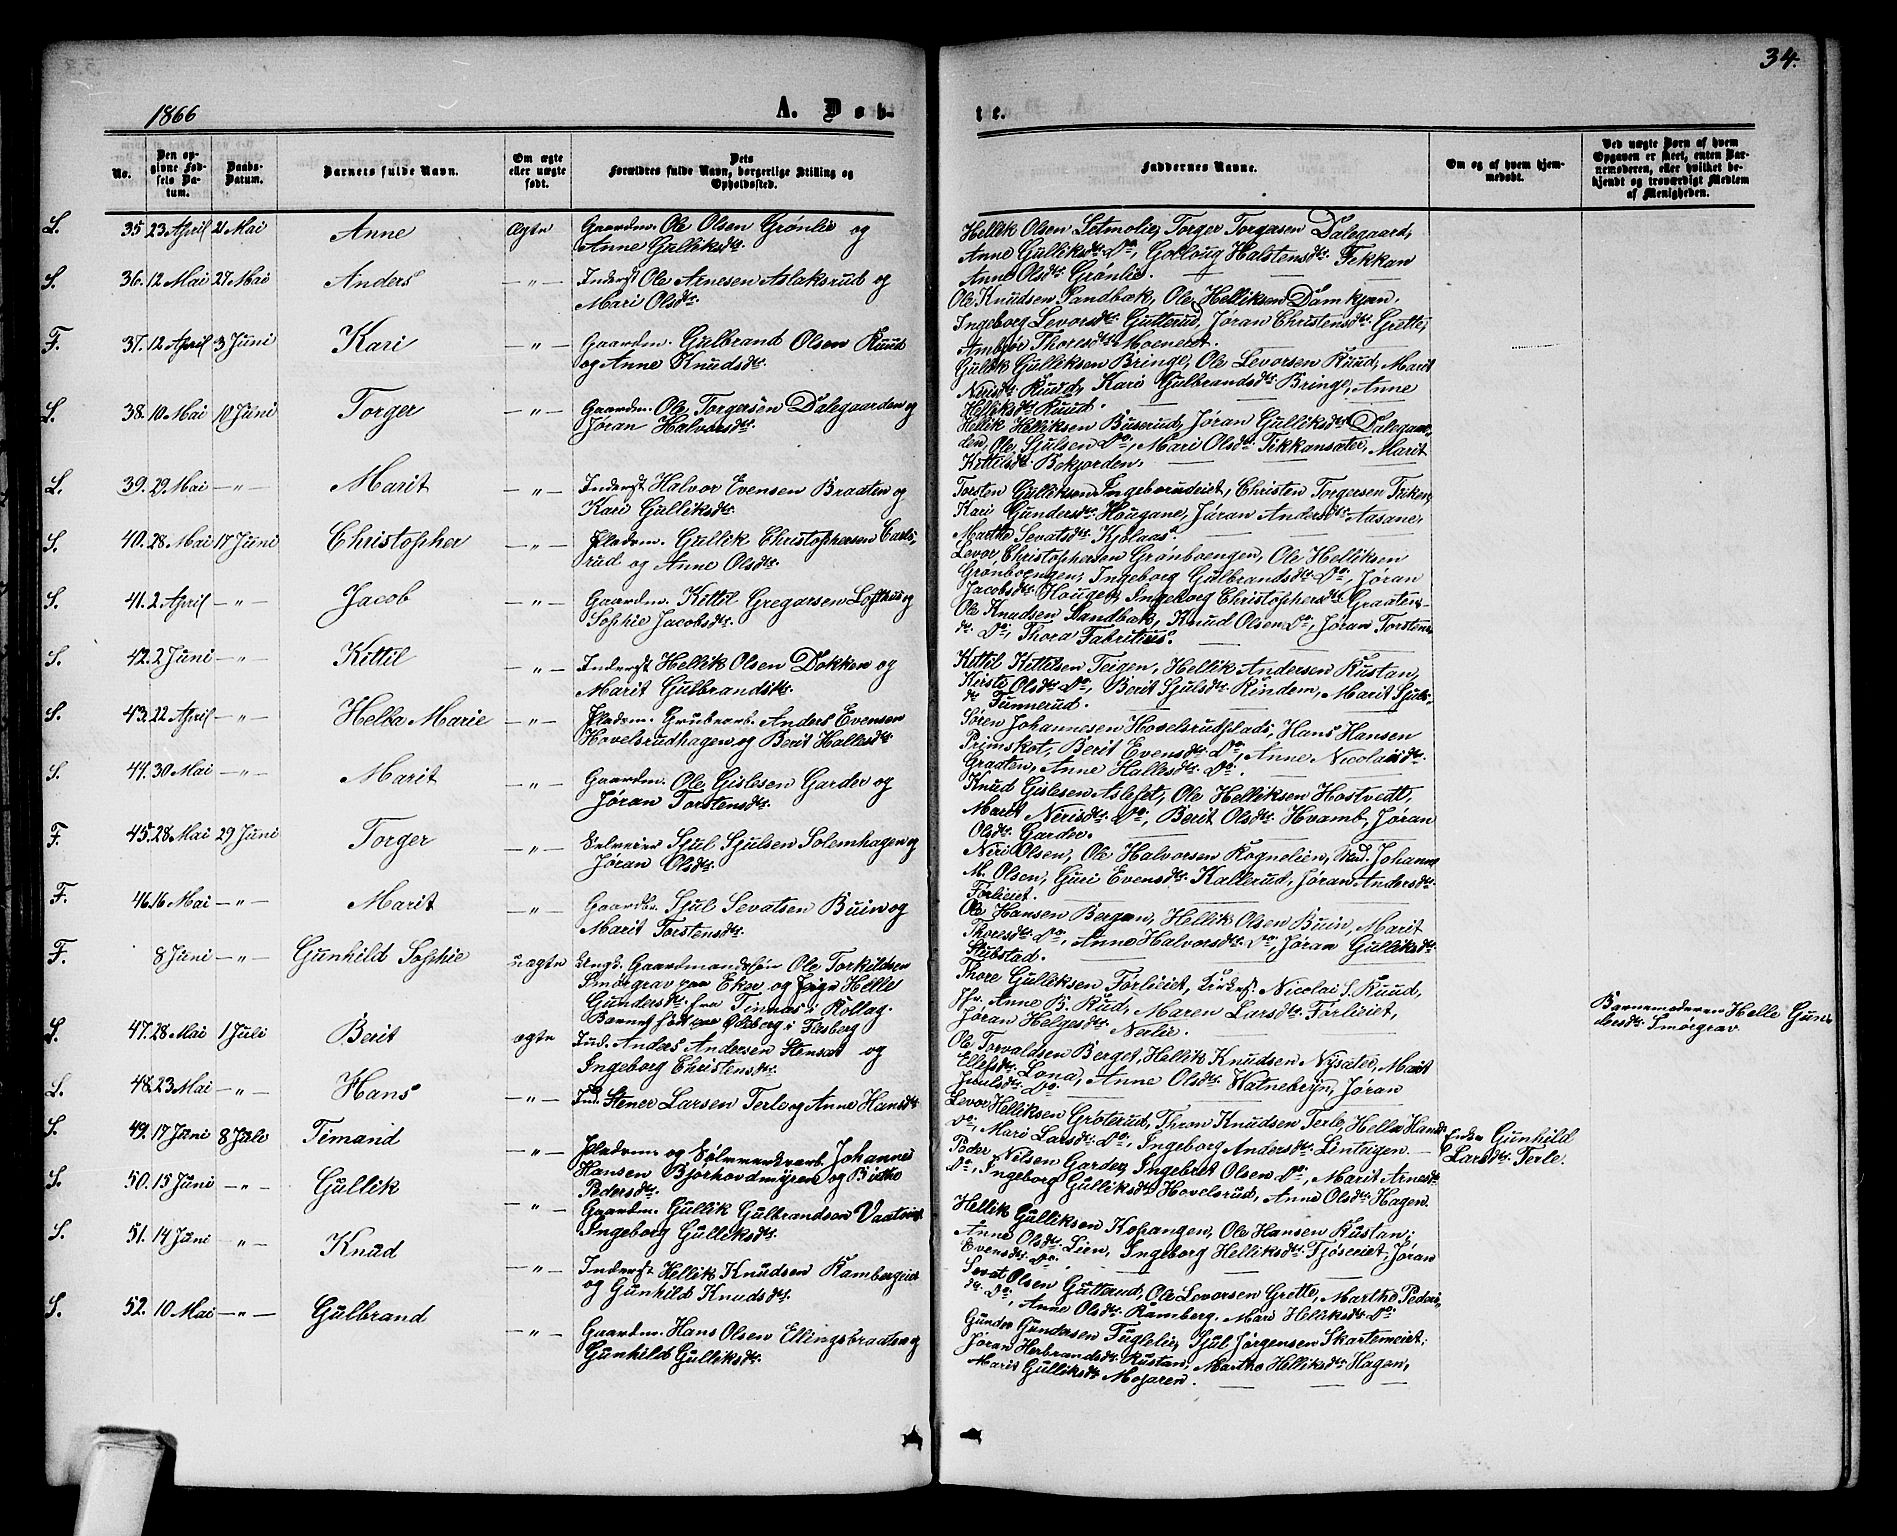 34.
1866
A. Døb-
te.
No.
Den op-
givne Fød-
sels Da-
tum.
Daabs-
Datum.
Barnets fulde Navn.
Om ægte
eller uægte
født.
Dets
Forældres fulde Navn, borgerlige Stilling og
Opholdssted.
Faddernes Navne.
Om og af hvem hjem-
medøbt.
Ved uægte Børn af hvem
Opgaven er skeet, enten Bar-
nemoderen, eller hvilket be-
kjendt og troværdigt Medlem
af Menigheden.
L. 35 23 April 21 Mai Anne Ægte Gaardm. Ole Olsen Grønlie og
Anne Gulliksdr.
Hellik Olsen Setmolie, Torger Torgersen Dalegaard,
Anne Gulliksdr. Do, Golloug Halstensdr. Fikkan
Anne Olsdr. Grønlie.
S. 36. 12 Mai 27 Mai Anders — " — Inderst Ole Arnesen Aslaksrud og
Mari Olsdr.
Ole Knudsen Sandbæk, Ole Helliksen Damkjær.
Ingeborg Levorsdr. Gutterud, Jøran Christensdr. Grette,
Ambjør Thoresdr. Moeneiet.
F. 37. 12 April 3 Juni Kari — " — Gaardm. Gulbrand Olsen Ruud
og Anne Knudsdr.
Gullik Gulliksen Bringe, Ole Levorsen Ruud, Marit
Nerisdr. Ruud, Kari Gulbrandsdr. Bringe, Anne
Helliksdr. Ruud.
L. 38. 10 Mai 10 Juni Torger — " — Gaardm. Ole Torgersen Dalegaarden og
Jøran Halvorsdr.
Hellik Helliksen Buserud, Jøran Gulliksdr. Dalegaar-
den, Ole Sjulsen Do, Mari Olsdr. Fikkansæter, Marit
Kittilsdr. Bekjorden.
L. 39. 29 Mai — " — Marit — " — Inderst Halvor Evensen Braaten og
Kari Gulliksdr.
Torsten Gulliksen Ingeborudeiet, Christen Torgersen Friken,
Kari Gundersdr. Hougane, Jøran Andersdr. Aasane,
Marthe Sevatsdr. Kjølaas.
S. 40. 28. Mai 17 Juni Christopher — " — Pladsm. Gullik Christophersen Carls-
rud og Anne Olsdr.
Levor Christophersen Grønboengen, Ole Helliksen
Grønboengen, Ingeborg Gulbrandsdr. Do, Jøran
Jacobsdr. Houger, Ingeborg Christophersdr. Graaten.
S. 41. 2 April — " — Jacob — " — Gaardm. Kittil Gregarsen Lofthus og
Sophie Jacobsdr.
Ole Knudsen Sandbæk, Knud Olsen Do, Jøran Torstens-
dr. Do, Thora Fabritius.
S. 42. 2 Juni — " — Kittil — " — Inderst Hellik Olsen Dokken og
Marit Gulbrandsdr.
Kittil Kittilsen Teigen, Hellik Andersen Rustan,
Kirsti Olsdr. Do, Berit Sjulsdr. Rindem, Marit Sjuls-
dr. Tunnerud.
S. 43. 22 April — " — Hella Marie — " — Pladsm. Grubearb. Anders Evensen
Hovelsrudhagen og Berit Hallesdr.
Søren Johannesen Hovelsrudplads, Hans Hansen
Primskot, Berit Evensdr. Do, Anne Nicolaisdr.
Graaten, Anne Hallesdr. Do.
S. 44. 30 Mai — " — Marit — " — Gaardm. Ole Gislesen Garder og
Jøran Torstensdr.
Knud Gislesen Aslefet, Ole Helliksen Hostvedt,
Marit Nerisdr. Do, Berit Olsdr. Hvamb, Jøran
Olsdr. Garder.
F. 45. 28 Mai 29 Juni Torger — " — Selveier Sjul Sjulsen Solemhagen og
Jøran Olsdr.
Neri Olsen, Ole Halvorsen Rognelien, Stud. Johannes
M. Olsen, Guri Evensdr. Kallerud, Jøran Andersdr.
Førlieiet.
F. 46. 16 Mai — " — Marit — " — Gaardbr. Sjul Sevatsen Buin og
Marit Torstensdr.
Ole Hansen Bergan, Hellik Olsen Buin, Marit
Thoresdr. Do, Anne Halvorsdr. Do, Jøran Gulliksdr.
Stubstad.
F. 8 Juni — " — Gunhild Sophie uægte Ungk. Gaardmandssøn Ole Torkildsen
Smørgrav paa Eker og Pige Helle
Gundersdr. fra Tinnas i Rollag.
Barnet født paa Ødeborg i Flesberg
Thore Gulliksen Førlieiet, Kirkes. Nicolai S. Ruud,
Jfr. Anne B. Rud, Maren Larsdr. Førlieiet,
Jøran Helgesdr. Nerlie.
Barnemoderen Helle Gun-
dersdr. Smørgrav.
L. 47. 28 Mai 1 Juli Berit ægte Ind. Anders Andersen Stensæt og
Ingeborg Christensdr.
Ole Torvaldsen Berget, Hellik Knudsen Nysæter, Marit
Ellefsdr. Lona, Anne Olsdr. Watnebryn, Jøran
Juulsdr. Do.
L. 48. 23 Mai — " — Hans — " — Ind. Stener Larsen Terle og Anne Hansdr.
Levor Helliksen Grøterud, Thron Knudsen Terle, Hella Hansdr.
Do, Mari Larsdr. Do, Ingeborg Andersdr. Linteigen. —
Enke Gunhild
Larsdr. Terle.
S. 49. 17 Juni 8 Juli Timand — " — Pladsm. og Sølvverksarb. Johannes
Hansen Bjørhovdmyren og Birthe
Pedersdr.
Peder Nilsen Garder, Ingebret Olsen Do, Marit Arnesdr.
Do, Ingeborg Gulliksdr. Hovelsrud, Anne Olsdr. Hagen.
S. 50. 15 Juni — " — Gullik — " — Gaardm. Gullik Gulbrandsen Vaatvigt
Ingeborg Gulliksdr.
Hellik Gulliksen Kopangen, Ole Hansen Rustan,
Anne Olsdr. Lien, Ingeborg Helliksdr. Fjøseriet, Jøran
Evensdr. Do.
S. 51. 14 Juni — " — Knud — " — Inderst Hellik Knudsen Rambergeie
og Gunhild Knudsdr.
Sevat Olsen Gutterud, Ole Levorsen Grette, Marthe Peders-
dr. Do, Anne Olsdr. Ramberg. Mari Helliksdr. Do
S. 52. 10 Mai — " — Gulbrand — " — Gaardm. Hans Olsen Ellingsbraaten og
Gunhild Gulliksdr.
Gunder Gundersen Fuglelie, Sjul Jørgensen Skartemeiet,
Jøran Herbrandsdr. Rustan, Marthe Helliksdr. Hagen,
Marit Gulliksdr. Moparen.